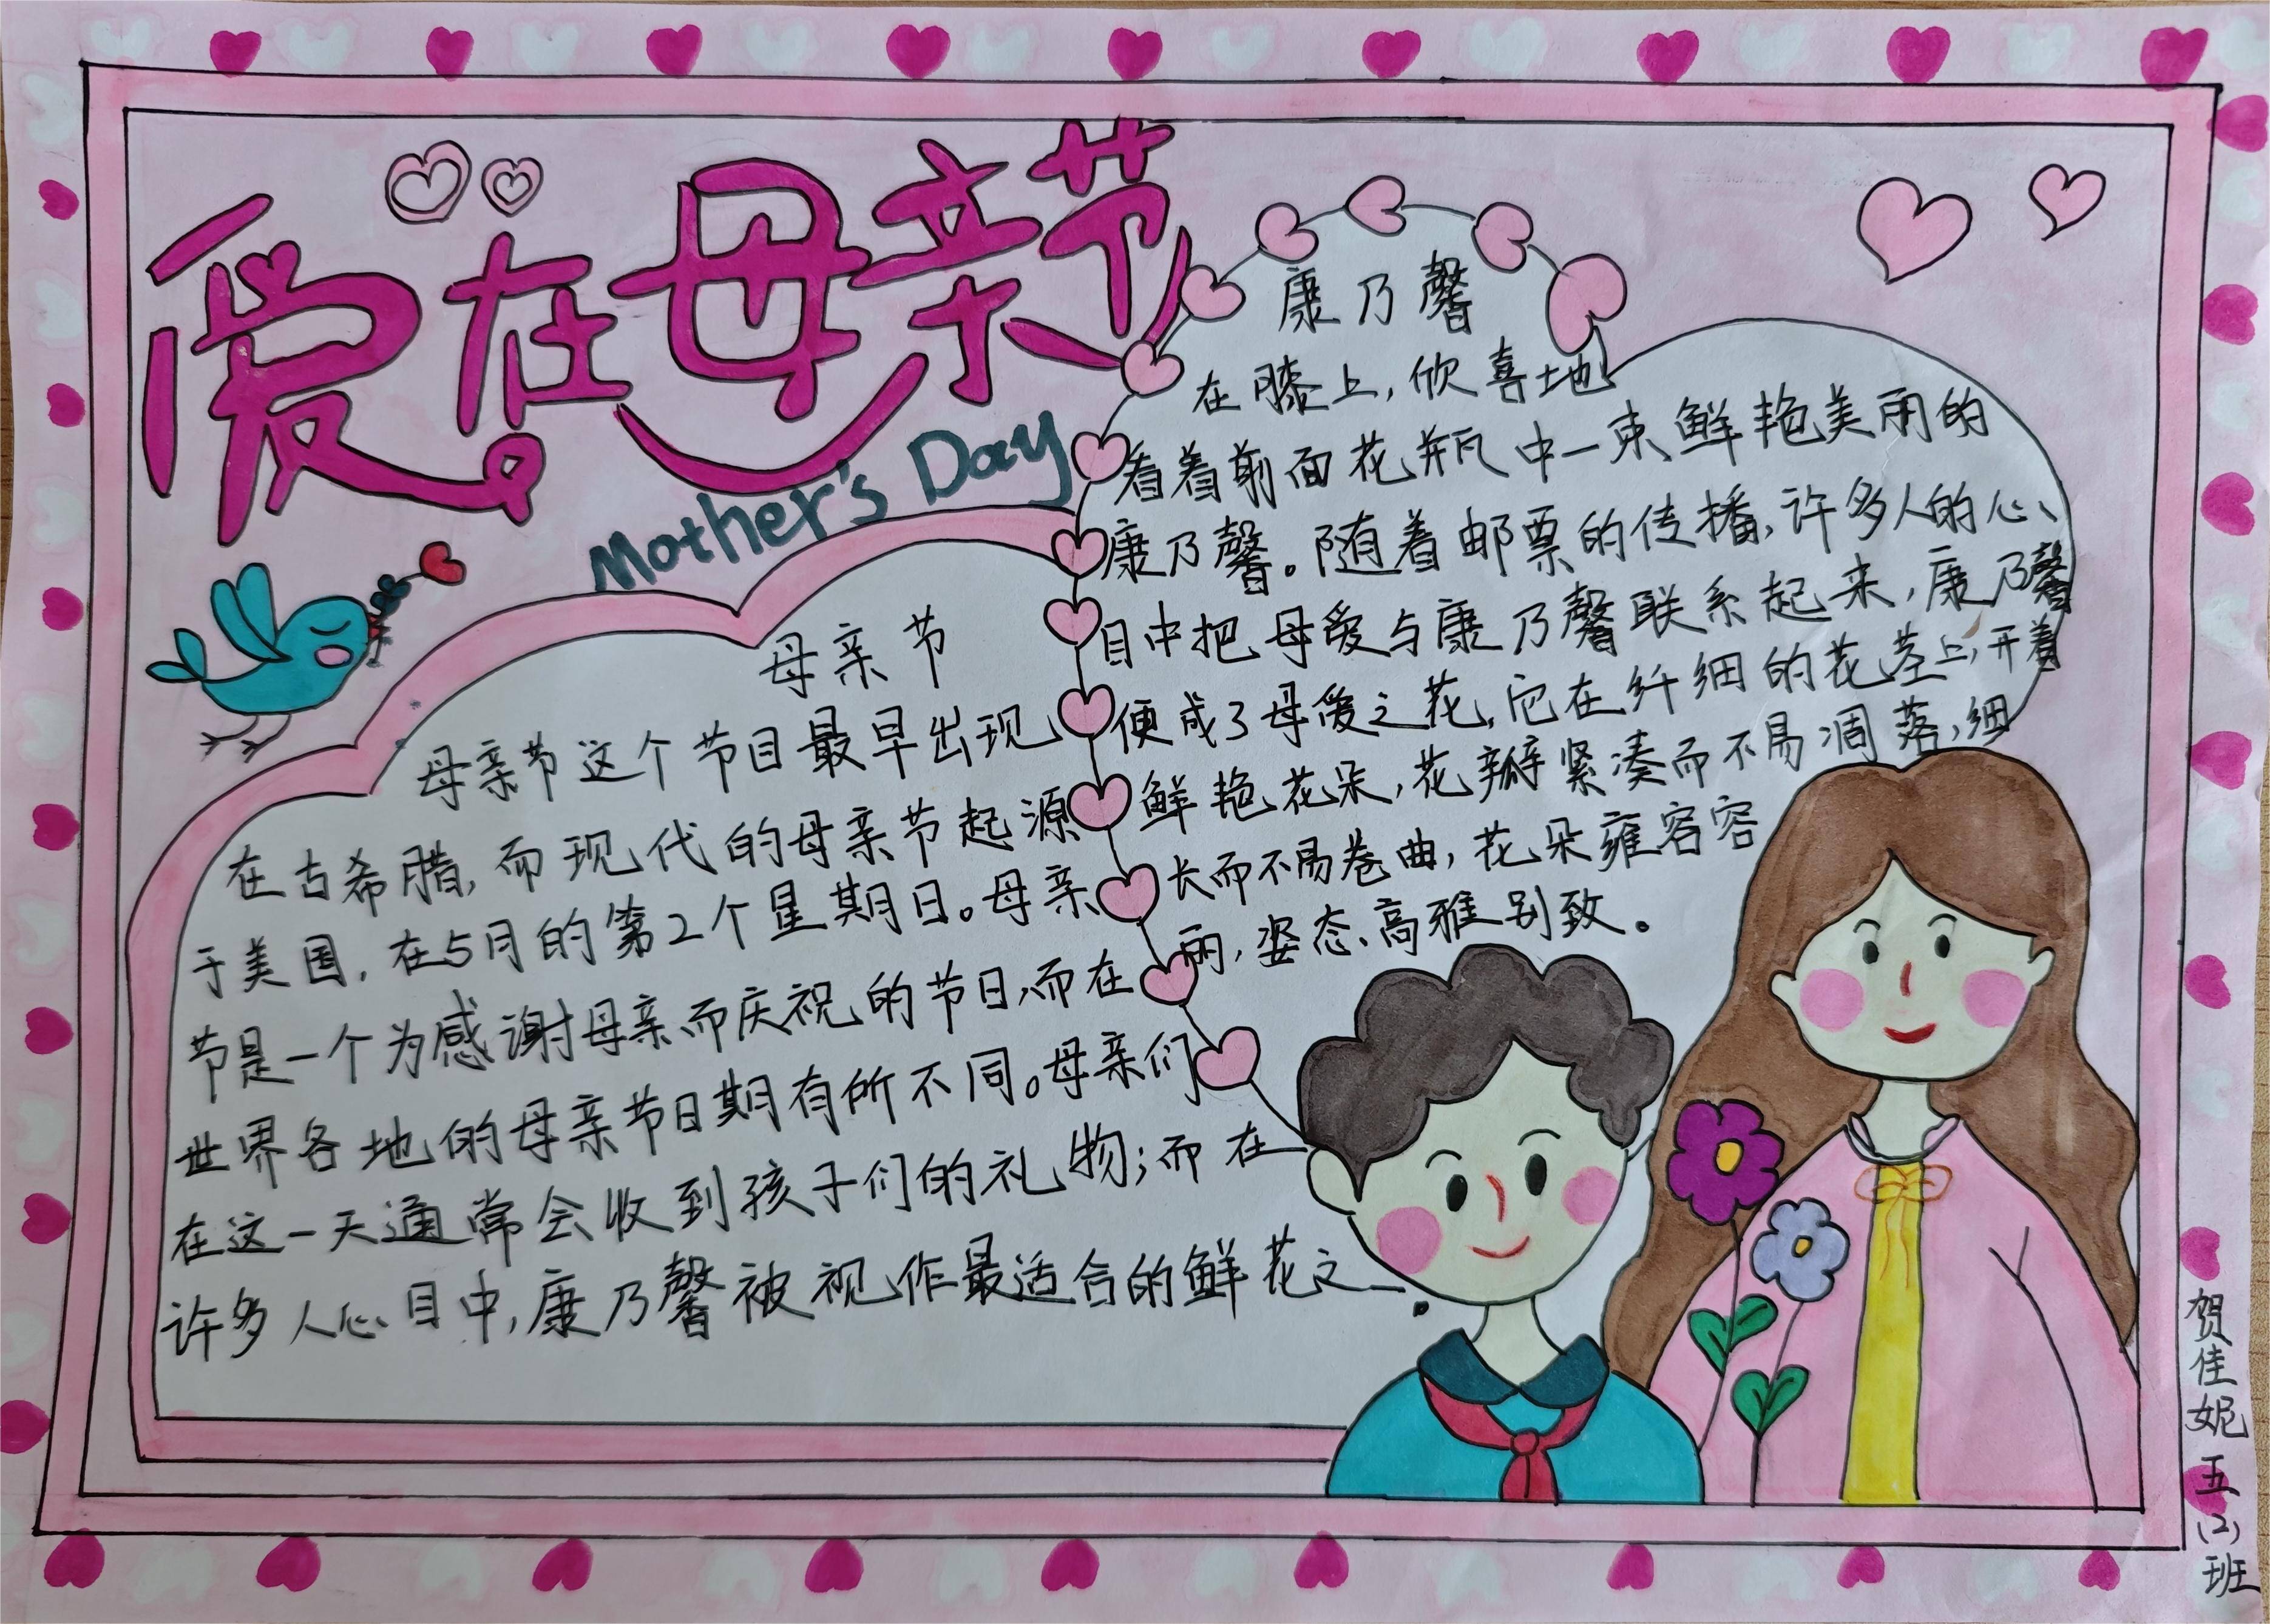 爱在母亲节
Mother's Day
母亲节
母亲节这个节目最早出现
在古希腊,而现代的母亲节起源
于美国,在5月的第2个星期日。母亲
节是一个为感谢母亲而庆祝的节日,而在
世界各地的母亲节日期有所不同。母亲们
在这一天通常会收到孩子们的礼物;而在
许多人心目中,康乃馨被视作最适合的鲜花之一.
康乃馨
在膝上,欣喜地
看着前面花瓶中一束鲜艳美丽的
康乃馨。随着邮票的传播,许多人的心
目中把母爱与康乃馨联系起来,康乃馨
便成了母爱之花,它在纤细的花茎上,开着
鲜艳花朵,花瓣紧凑而不易凋落,细
长而不易卷曲,花朵雍容容
丽,姿态高雅别致。
贺佳妮 五(2)班